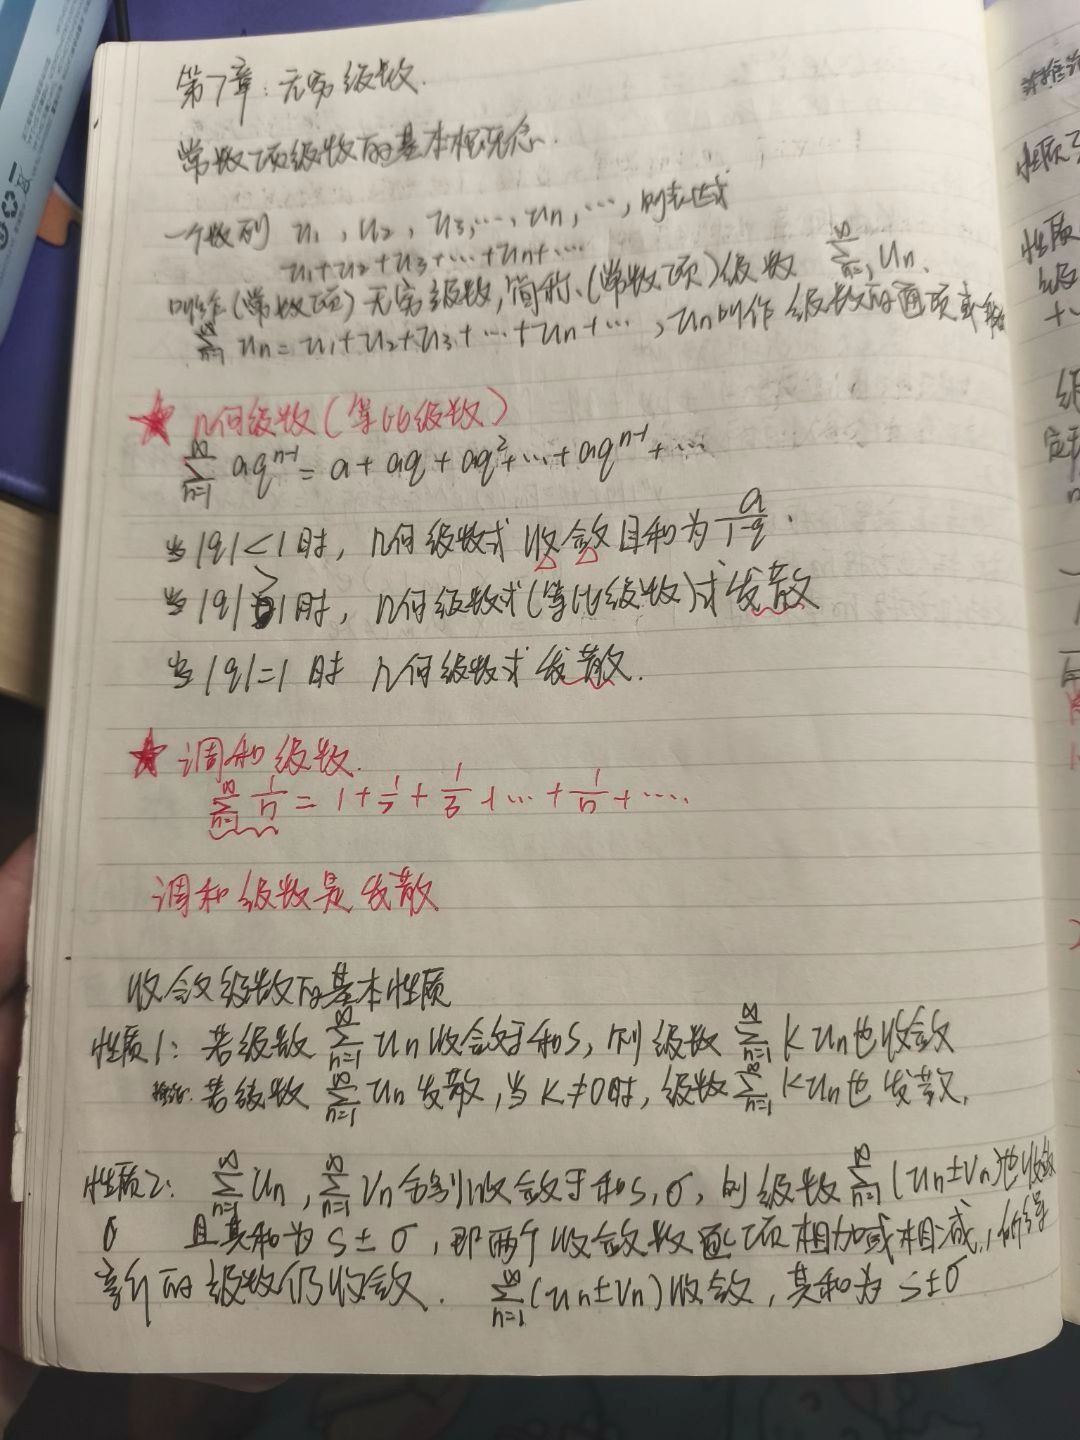 第7章：无穷级数.
常数项级数的基本概念.
一个数列 u₁，u₂，u₃，…，uₙ，…，则表达式
u₁+u₂+u₃+…+uₙ+…
叫作(常数项)无穷级数，简称(常数项)级数 ∑_{n=1}^{∞} uₙ.
∑_{n=1}^{∞} uₙ = u₁+u₂+u₃+…+uₙ+…，uₙ叫作级数的通项或
★ 几何级数(等比级数)
∑_{n=1}^{∞} aqⁿ⁻¹ = a + aq + aq²+…+aqⁿ⁻¹+…
当|q|<1时，几何级数式收敛且和为 a/(1-q).
当|q|>1时，几何级数式(等比级数)式发散
当|q|=1时 几何级数式发散.
★ 调和级数.
∑_{n=1}^{∞} 1/n = 1 + 1/2 + 1/3 +…+ 1/n +….
调和级数是发散
收敛级数的基本性质
性质1：若级数 ∑_{n=1}^{∞} uₙ收敛于和S，则级数 ∑_{n=1}^{∞} kuₙ也收敛
推论：若级数 ∑_{n=1}^{∞} uₙ发散，当k≠0时，级数 ∑_{n=1}^{∞} kuₙ也发散.
性质2： ∑_{n=1}^{∞} uₙ，∑_{n=1}^{∞} vₙ分别收敛于和S,σ，则级数 ∑_{n=1}^{∞} (uₙ±vₙ)也收敛
σ 且其和为 S±σ，即两个收敛数逐项相加或相减，所得
的级数仍收敛. ∑_{n=1}^{∞} (uₙ±vₙ)收敛，其和为 S±σ